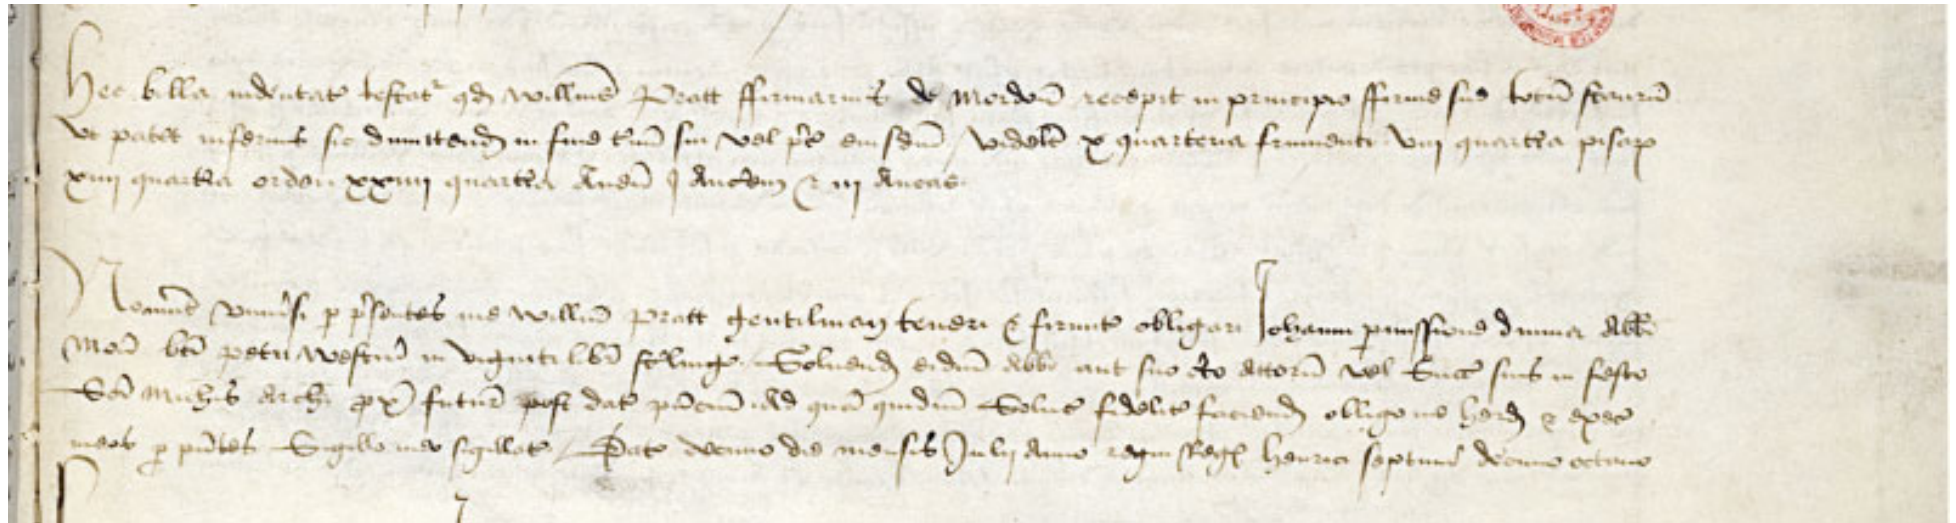 Hec billa indentat testat qd Willms Pratt ffirmarius de Mordon recepit in principio firme sue totu staurum
ut patet inferius sic dimittend in fine tmi sui vel pcio eiusdm videlt x quarteria frumenti viii quartia pisar
xiiii quartia ordei xxiiii quartia Aven j Aucam & iii Aucas
Novint univsi p psentes me Willm Pratt gentilman teneri & firmit obligari Johanni pmissione divina Abbi
Mon bti Petri Westm in viginti libr sterling Solvend eidm Abbi aut suo cto Attorn vel Succ suis in festo
Sci Michis Archi px futur post dat pncium Ad quam quidm Soluc fidelit faciend obligo me hered & exec
meos p pntes Sigillo meo sigillat Dat decimo die mensis Julij Anno regni Reg Henrici septimi decimo octavo